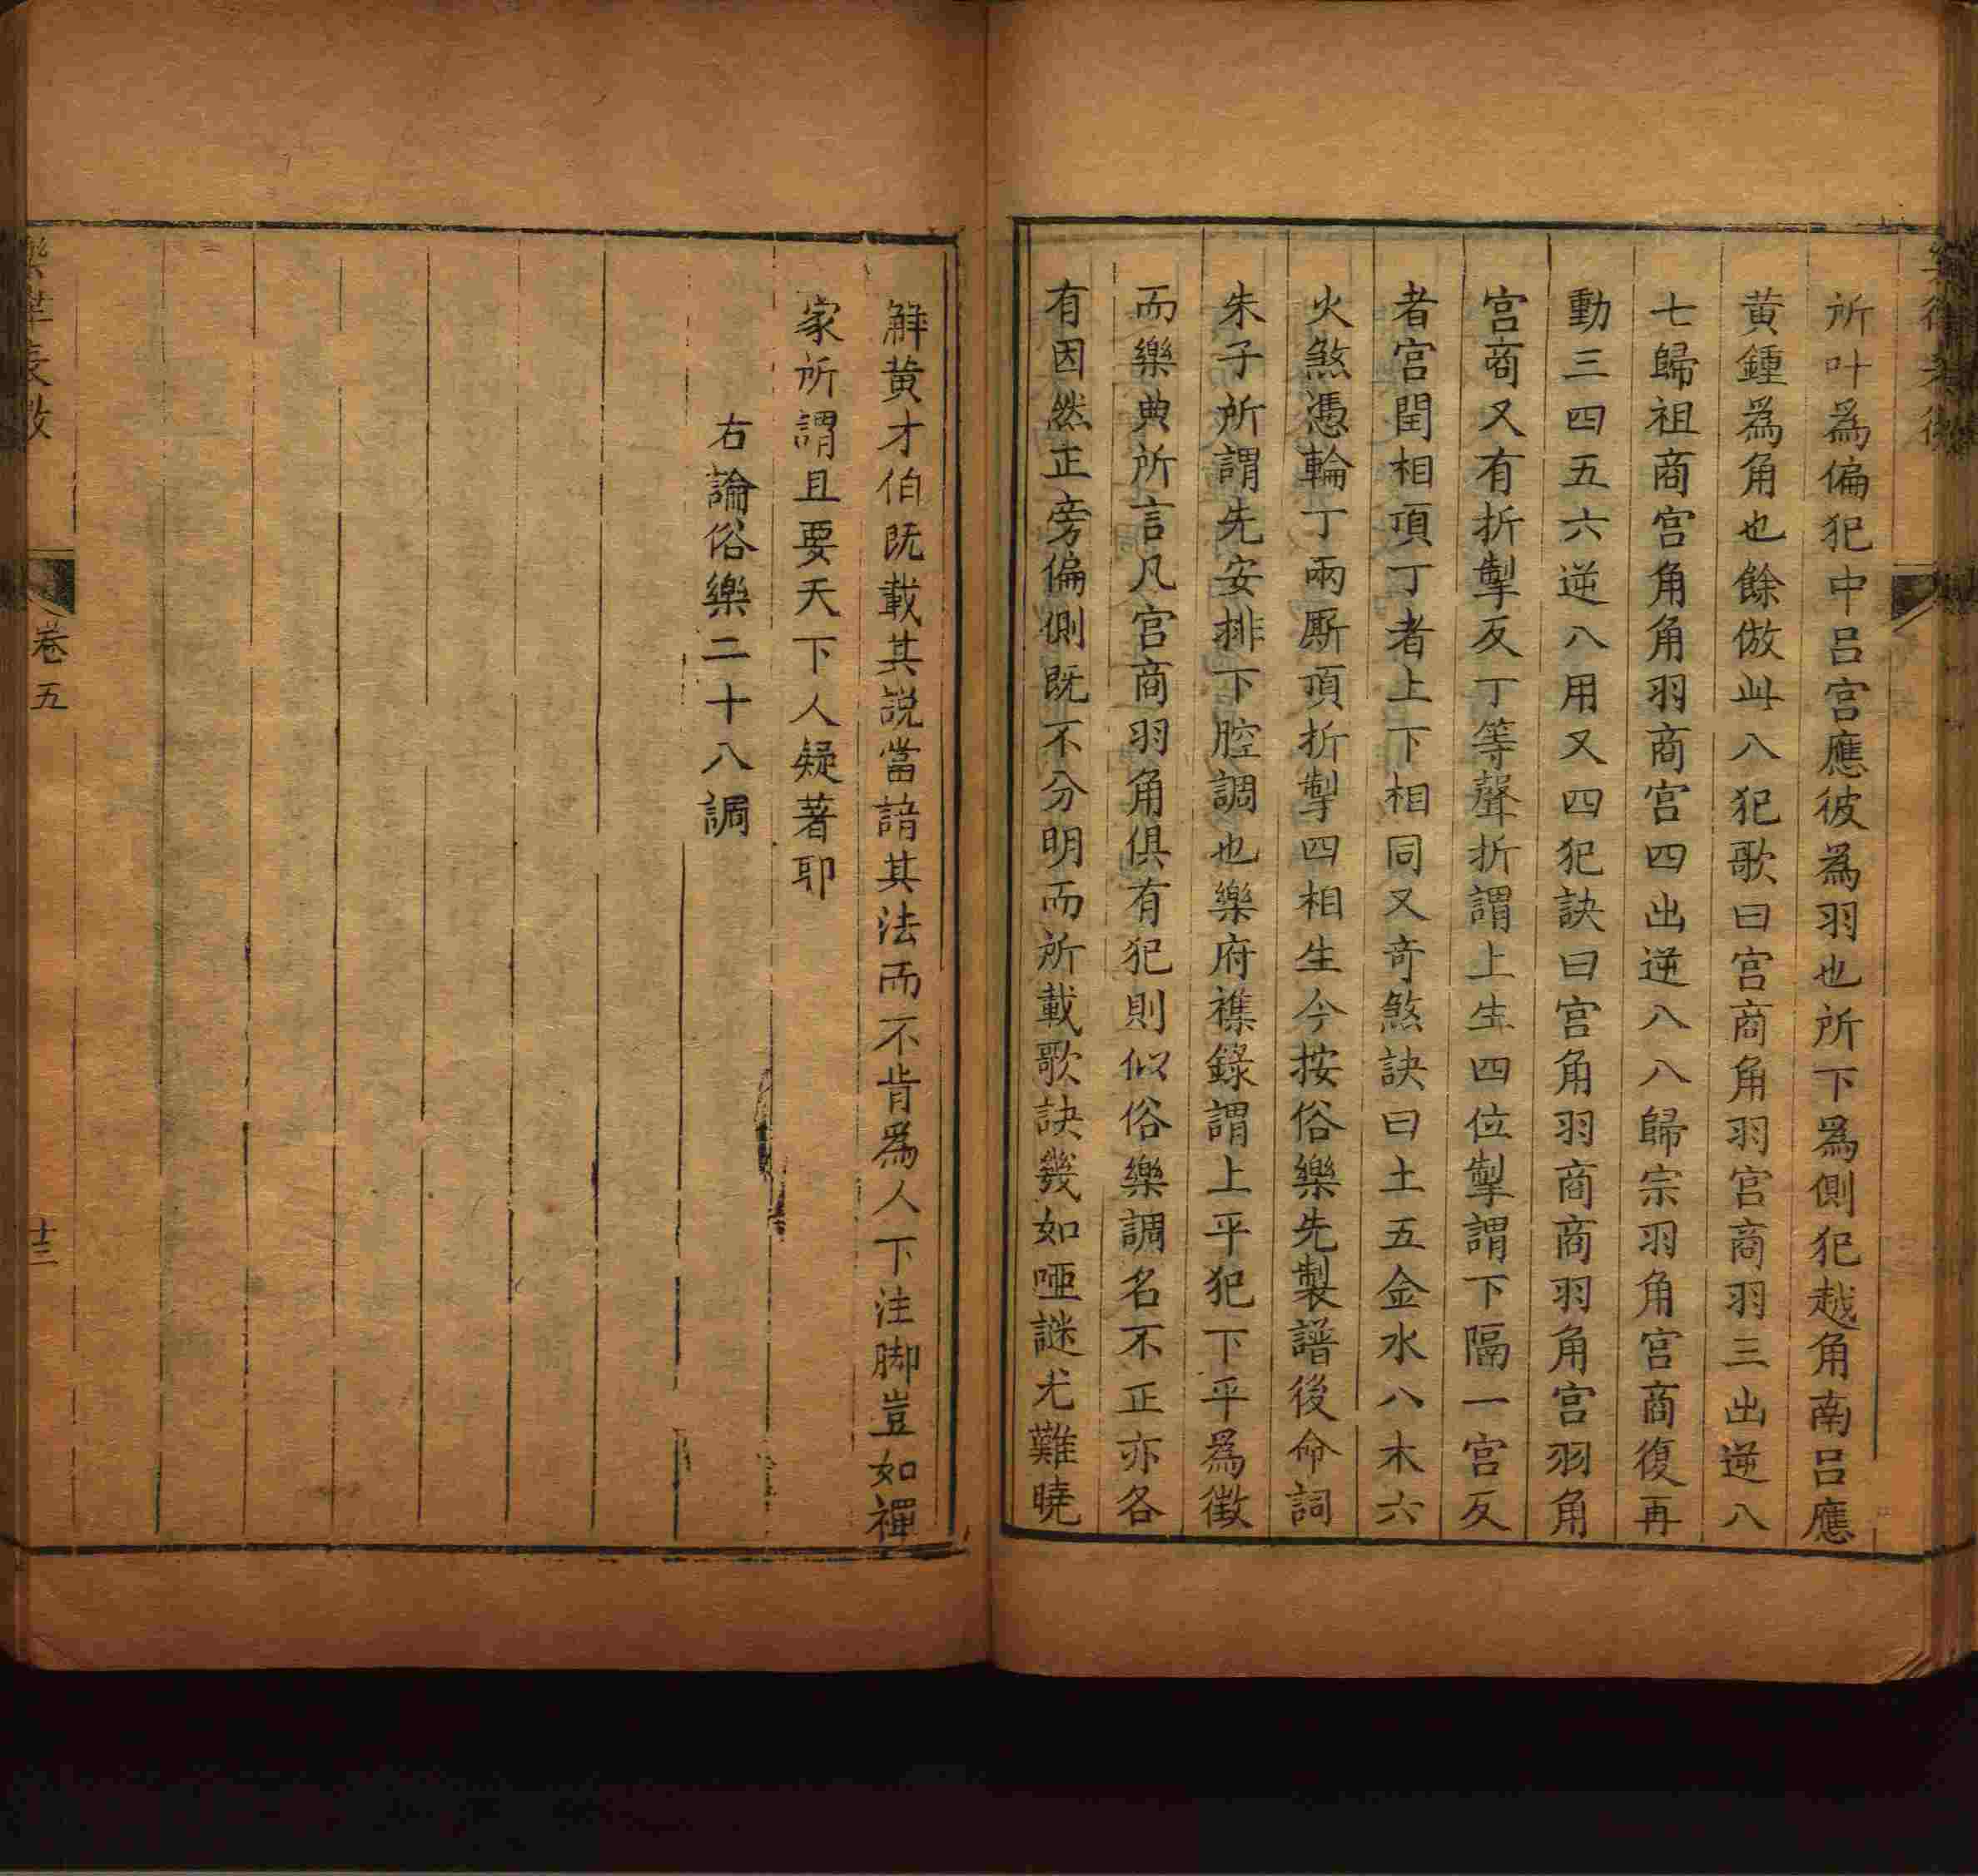 所叶爲偏犯中吕宫應彼爲羽也所下爲側犯越角南吕應
黄鍾爲角也餘倣此八犯歌曰宫商角羽宫商羽三出逆八
七歸祖商宫角角羽商宫四出逆八八歸宗羽角宫商復再
動三四五六逆八用又四犯訣曰宫角羽商商羽角宫羽角
宫商又有折掣反丁等聲折謂上生四位掣謂下隔一宫反
者宫閏相頂丁者上下相同又奇煞訣曰土五金水八木六
火煞憑輪丁兩厮頂折掣四相生今按俗樂先製譜後命詞
朱子所謂先安排下腔調也樂府襍錄謂上平犯下平爲徵
而樂典所言凡宫商羽角俱有犯則似俗樂調名不正亦各
有因然正旁偏側既不分明而所載歌訣幾如啞謎尤難曉
解黄才伯既載其説當諳其法而不肯爲人下注脚豈如禪
家所謂且要天下人疑著耶
右論俗樂二十八調
卷五
十三